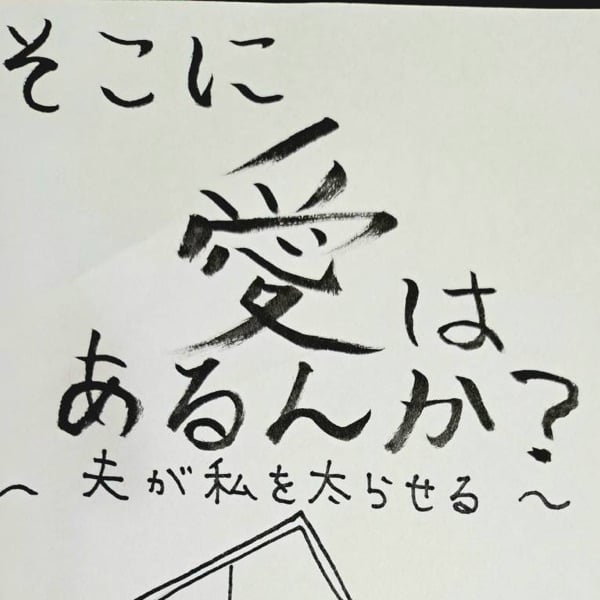 そこに
愛は
あるんか?
〜夫が私を太らせる〜